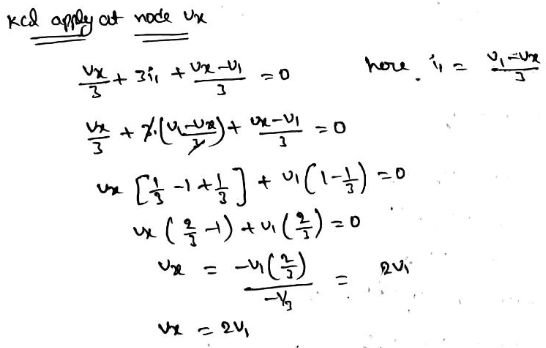 KCL apply at node Vx
Vx/3 + 3i₁ + (Vx-V₁)/3 = 0 here i₁ = (V₁-Vx)/3
Vx/3 + 3·(V₁-Vx)/3 + (Vx-V₁)/3 = 0
Vx [1/3 -1 + 1/3] + V₁(1-1/3) = 0
Vx (2/3 -1) + V₁(2/3) = 0
Vx = -V₁(2/3)/(-1/3) = 2V₁
Vx = 2V₁